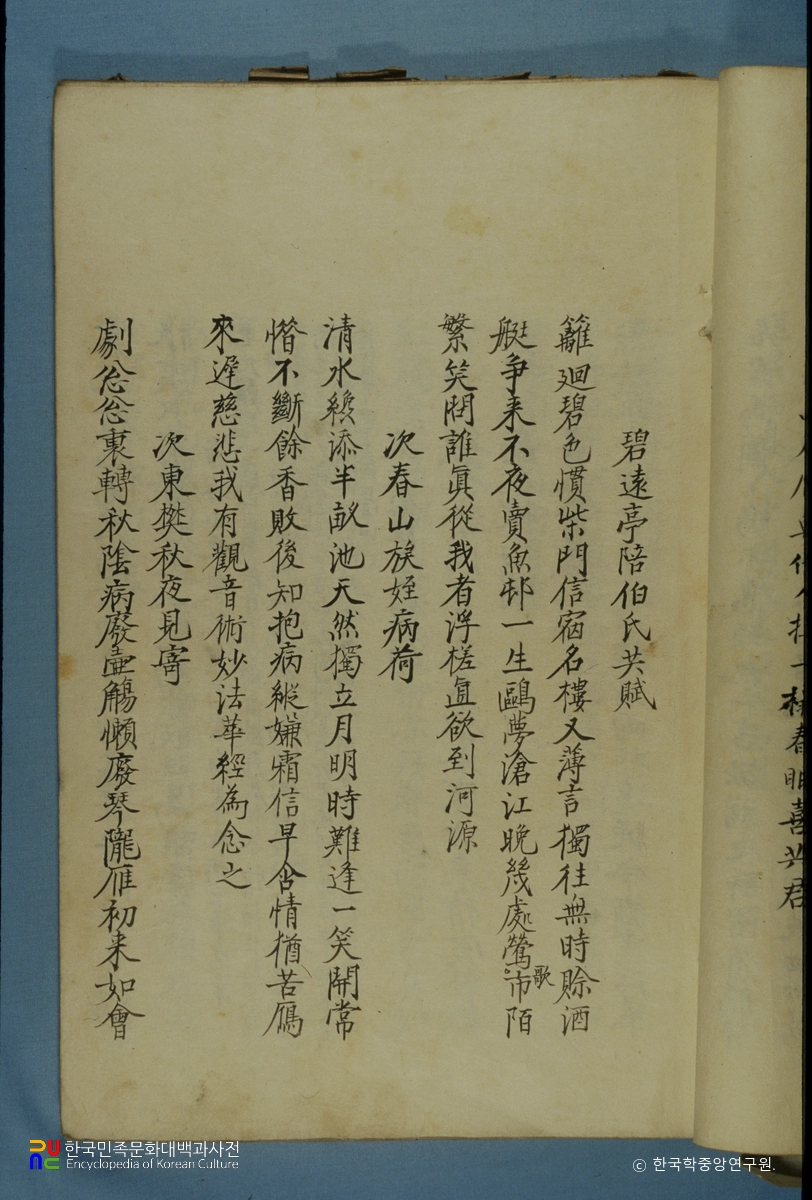 碧遠亭陪伯氏共賦
籬廻碧色慣柴門信宿名樓又薄言獨往無時賒酒
艇爭来不夜賣魚邨一生鷗夢滄江晩幾處鶯歌市陌
繁笑問誰眞從我者浮槎直欲到河源
次春山族姪病荷
清水纔添半畝池天然獨立月明時難逢一笑開常
惜不斷餘香敗後知抱病縱嫌霜信早含情猶苦鴈
來遲慈悲我有觀音術妙法華經為念之
次東樊秋夜見寄
劇忩忩裏轉秋陰病廢壺觴懶廢琴隴雁初来如會
春
喜共君
한국민족문화대백과사전
Encyclopedia of Korean Culture
© 한국학중앙연구원.